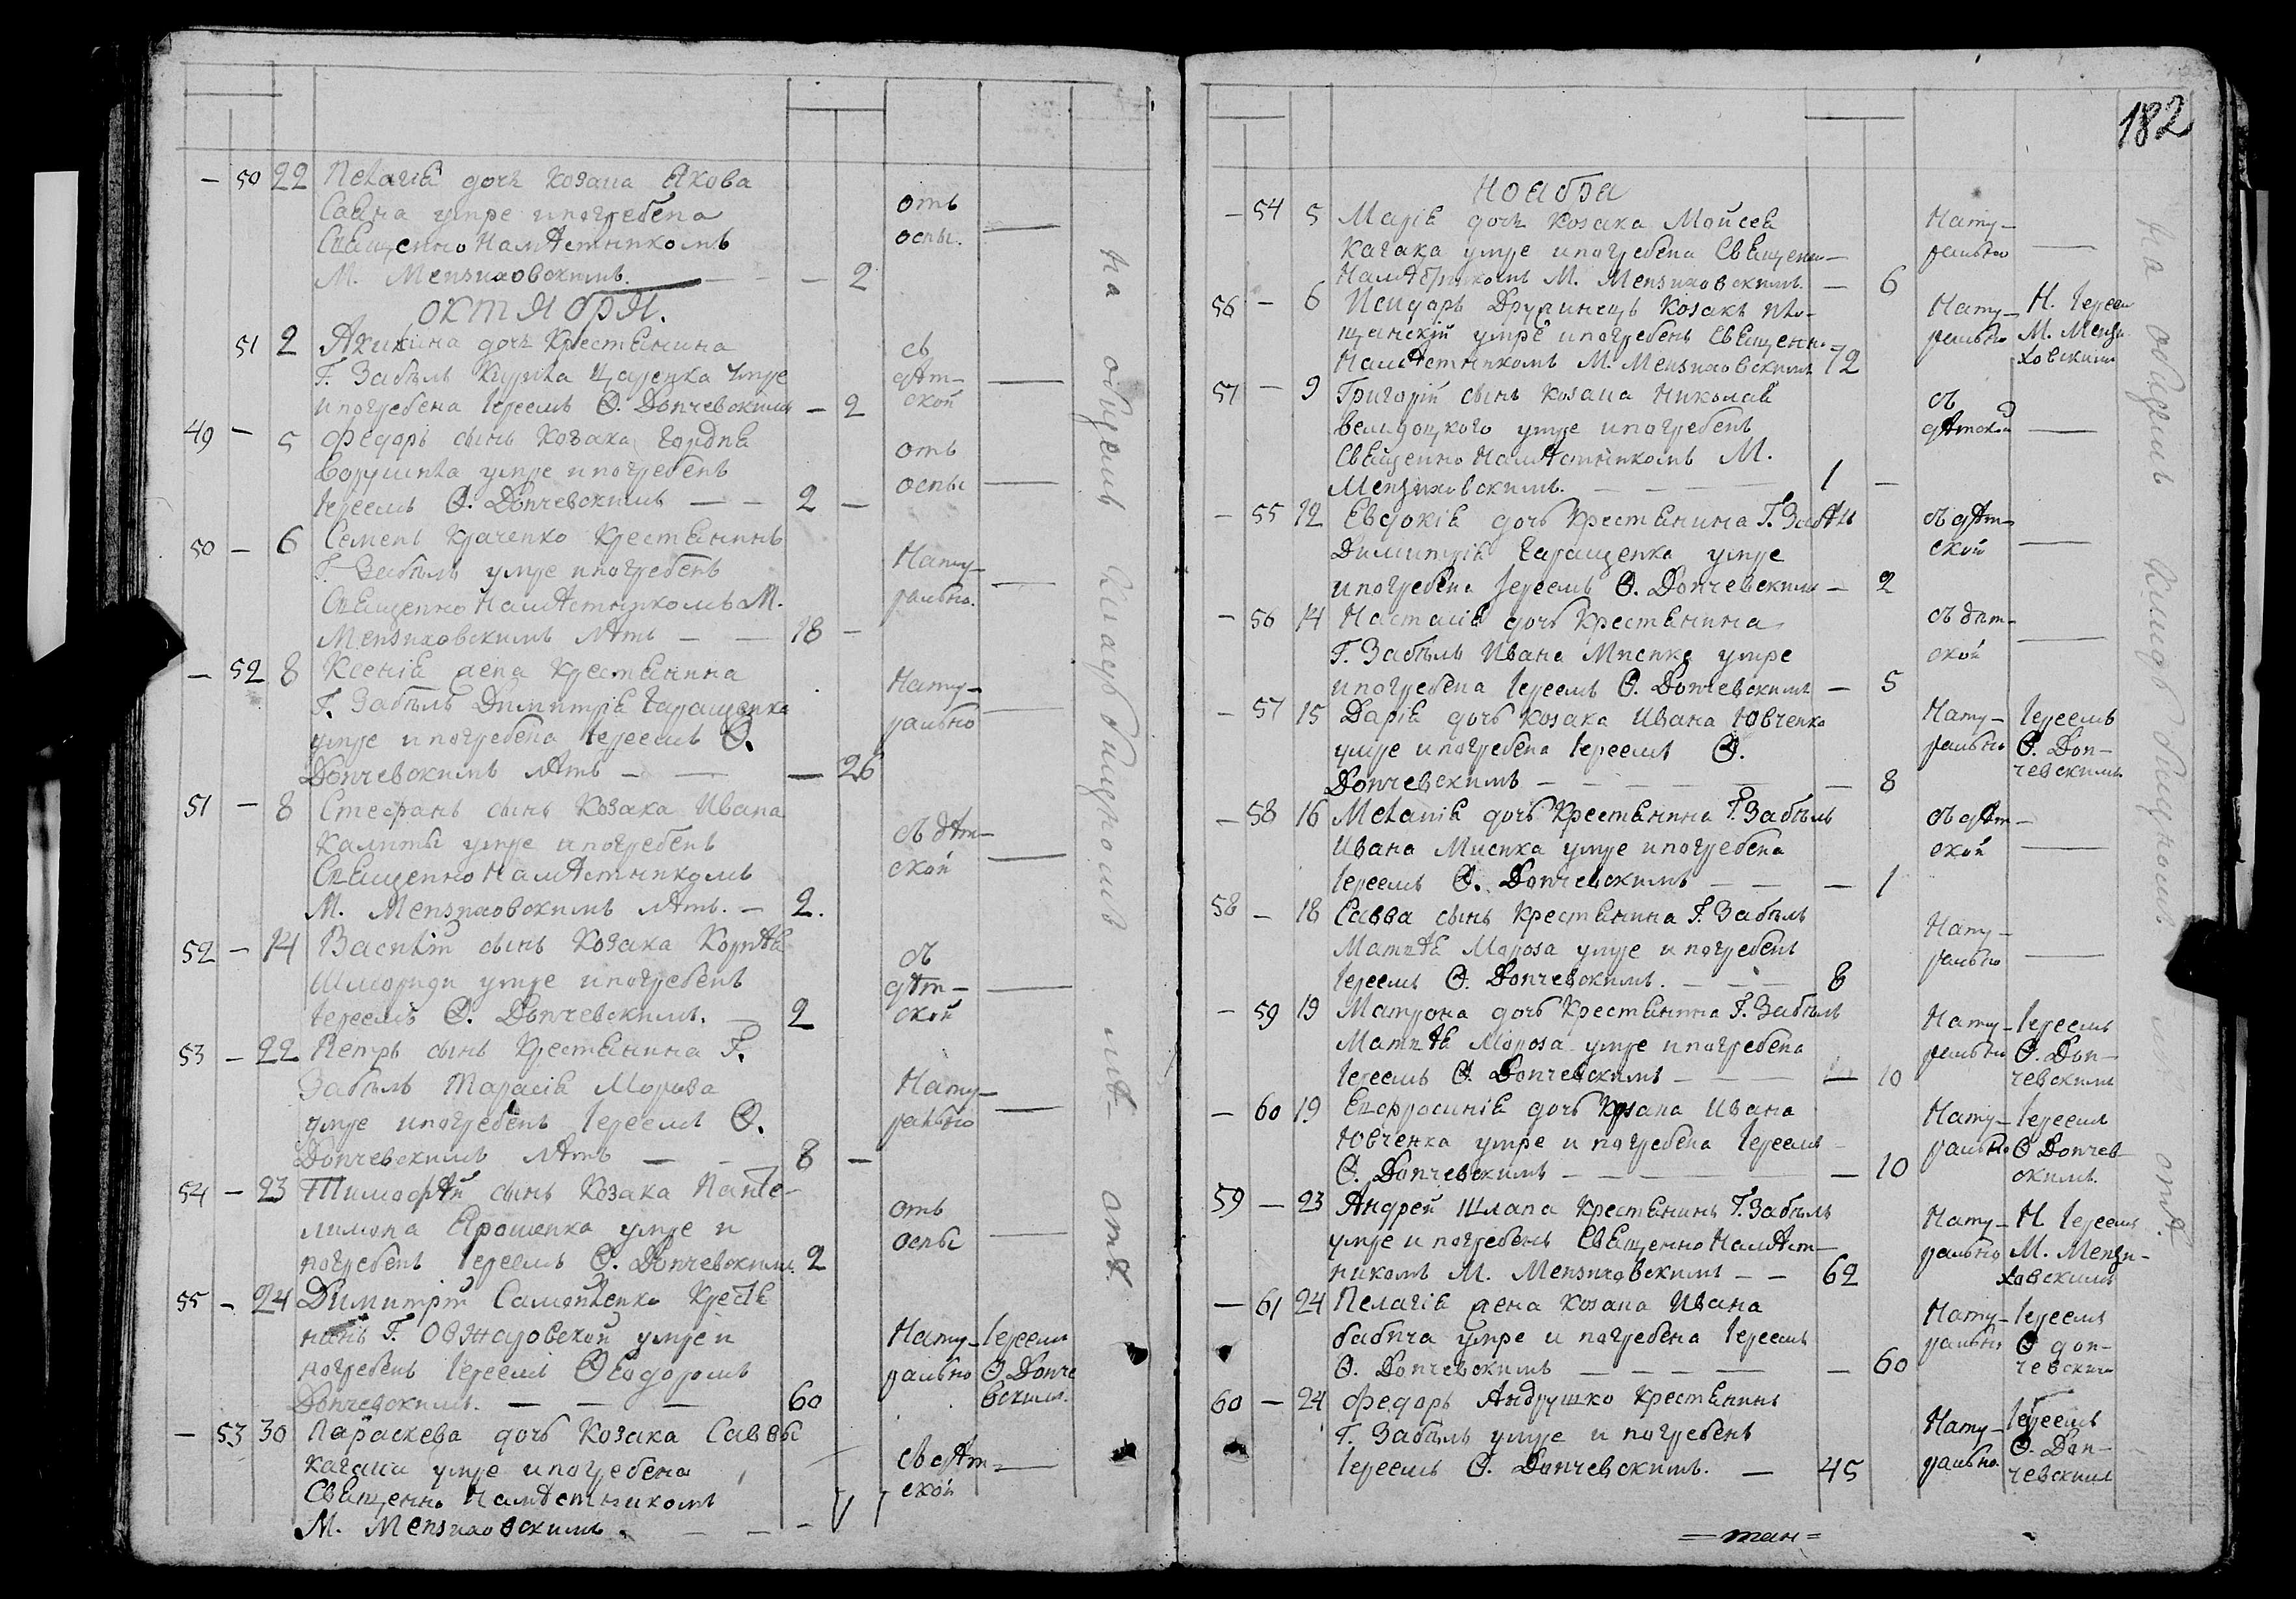 — 50 22 Пелагіѧ дочь козака Якова
умре и погребена
Священно Намѣстникомъ
М. Мензиховскимъ. — — 2
отъ
оспы. —
октября.
51 2 Акилина дочь крестѧнина
Г. Забѣлъ умре
и погребена Іереемъ Ѳ. Дончевскимъ — 2
съ
дѣт-
ской —
49 — 5 Федоръ сынъ козака Гордѣѧ
умре и погребенъ
Іереемъ Ѳ. Дончевскимъ — — 2 —
отъ
оспы —
50 — 6 Семенъ Краченко крестѧнинъ
Г. Забѣлъ умре и погребенъ
Свѧщенно Намѣстникомъ М.
Мензиховскимъ лѣтъ — — 18 —
Нату-
рально. —
— 52 8 Ксеніѧ жена крестѧнина
Г. Забѣлъ Димитріѧ Гаращенка
умре и погребена Іереемъ Ѳ.
Дончевскимъ лѣтъ — — — 26
Нату-
рально —
51 — 8 Стефанъ сынъ козака Ивана
Калиты умре и погребенъ
Свѧщенно Намѣстникомъ
М. Мензиховскимъ лѣтъ. — 2.
съ дѣт-
ской —
52 — 14 Василій сынъ козака Корнѣѧ
умре и погребенъ
Іереемъ Ѳ. Дончевскимъ. — 2
съ
дѣт-
ской —
53 — 22 Петръ сынъ крестѧнина Г.
Забѣлъ Тарасіѧ Мороза
умре и погребенъ Іереемъ Ѳ.
Дончевскимъ лѣтъ — — 8 —
Нату-
рально —
54 — 23 Тимофѣй сынъ козака Панте-
лимона Ярошенка умре и
погребенъ Іереемъ Ѳ. Дончевскимъ. 2
отъ
оспы —
55 — 24 Димитрій Самойленко крестѧ
нинъ Г. Овжаровской умре и
погребенъ Іереемъ Ѳеодоромъ
Дончевскимъ. — — — 60
Нату- Іереемъ
рально Ѳ Донче
вскимъ.
— 53 30 Параскева дочь козака Саввы
умре и погребена
Свѧщенно Намѣстникомъ
М. Мензиховскимъ. — — —
съ дѣт- —
ской
на общемъ кладбищномъ мѣ- стѣ
182
Ноабра
— 54 5 Маріѧ дочь козака Мойсеѧ
Качака умре и погребена Свѧщенно
Намѣстникомъ М. Мензиховскимъ. — 6
Нату-
рально —
56 — 6 Исидоръ козакъ
умре и погребенъ Свѧщенно
Намѣстникомъ М. Мензиховскимъ 72
Нату- Н. Іереем
рально М. Мензи
ховскимъ
57 — 9 Григорій сынъ козака Николаѧ
умре и погребенъ
Свѧщенно Намѣстникомъ М.
Мензиховскимъ. — — — — 1 —
съ
дѣтской —
— 55 12 Евдокіѧ дочь крестѧнина Г. Забѣлъ
Димитріѧ Гаращенка умре
и погребена Іереемъ Ѳ. Дончевскимъ — 2
съ дѣт-
ской —
— 56 14 Настасіѧ дочь крестѧнина
Г. Забѣлъ Ивана Мисика умре
и погребена Іереемъ Ѳ. Дончевскимъ — 5
съ дѣт-
ской —
— 57 15 Даріѧ дочь козака Ивана Ювченка
умре и погребена Іереемъ Ѳ.
Дончевскимъ — — — — — — 8
Нату- Іереемъ
рально Ѳ. Дон-
чевскимъ
— 58 16 Меланіѧ дочь крестѧнина Г. Забѣлъ
Ивана Мисика умре и погребена
Іереемъ Ѳ. Дончевскимъ — — — 1
съ дѣт-
ской —
58 — 18 Савва сынъ крестѧнина Г. Забѣлъ
Матвѣѧ Мороза умре и погребенъ
Іереемъ Ѳ. Дончевскимъ. — — — 8
Нату-
рально —
— 59 19 Матрона дочь крестѧнина Г. Забѣлъ
Матвѣѧ Мороза умре и погребена
Іереемъ Ѳ. Дончевскимъ — — — — 10
Нату- Іереемъ
рально Ѳ. Дон-
чевскимъ
— 60 19 Евфросиніѧ дочь козака Ивана
Ювченка умре и погребена Іереемъ
Ѳ. Дончевскимъ — — 10
Нату- Іереемъ
рально Ѳ Дончев
скимъ.
59 — 23 Андрей Шлапа крестѧнинъ Г. Забѣлъ
умре и погребенъ Свѧщенно Намѣст-
никомъ М. Мензиховскимъ — — 62
Нату- Н Іереемъ
рально М. Мензи-
ховскимъ
— 61 24 Пелагіѧ жена козака Ивана
бабича умре и погребена Іереемъ
Ѳ. Дончевскимъ — — — — 60
Нату- Іереемъ
рально Ѳ дон-
чевским
60 — 24 Федоръ Андрушко крестѧнинъ
Г. Забѣлъ умре и погребенъ
Іереемъ Ѳ. Дончевскимъ. — 45
Нату- Іереемъ
рально. Ѳ. Дон-
чевскимъ
на общемъ кладбищномъ мѣ стѣ.